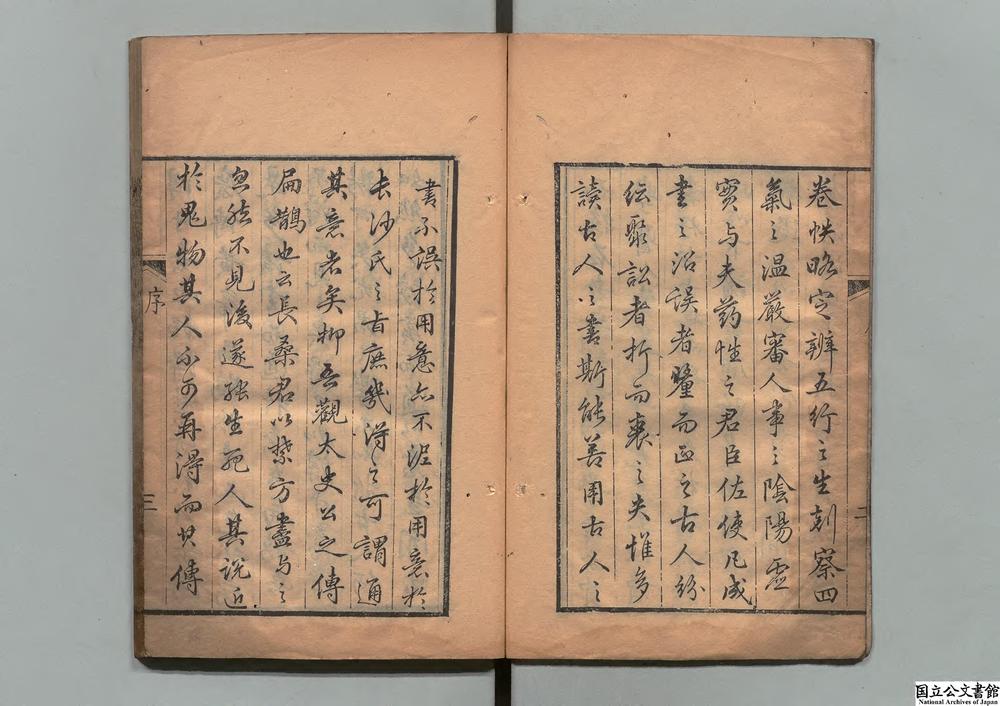 卷帙略定辨五行之生剋察四
氣之温嚴審人事之陰陽虚
實与夫药性之君臣佐使凡成
書之沿误者釐而正之古人紛
紜聚訟者折而衷之夫惟多
讀古人之書斯能善用古人之
書不誤於用意亦不泥於用意於
長沙氏之旨庶幾得之可謂通
其意者矣抑吾觀太史公之傳
扁鵲也云長桑君以禁方盡与之
忽然不見後遂能生死人其説近
於鬼物其人不可再得而其傳
序
二
三
国立公文書館
National Archives of Japan